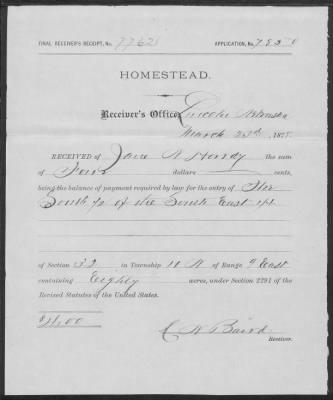 FINAL RECEIVER'S RECEIPT, No. 7762
APPLICATION, No.
HOMESTEAD.
Receiver's Office, Lincoln Nebraska
March 187
RECEIVED of Hardy the sum
of Four dollars cents,
being the balance of payment required by law for the entry of The
South 1/2 of the South East 1/4
of Section 32 in Township 11 N of Range 4 East
containing Eighty acres, under Section 2291 of the
Revised Statutes of the United States.
$4.00
Baird
Receiver.